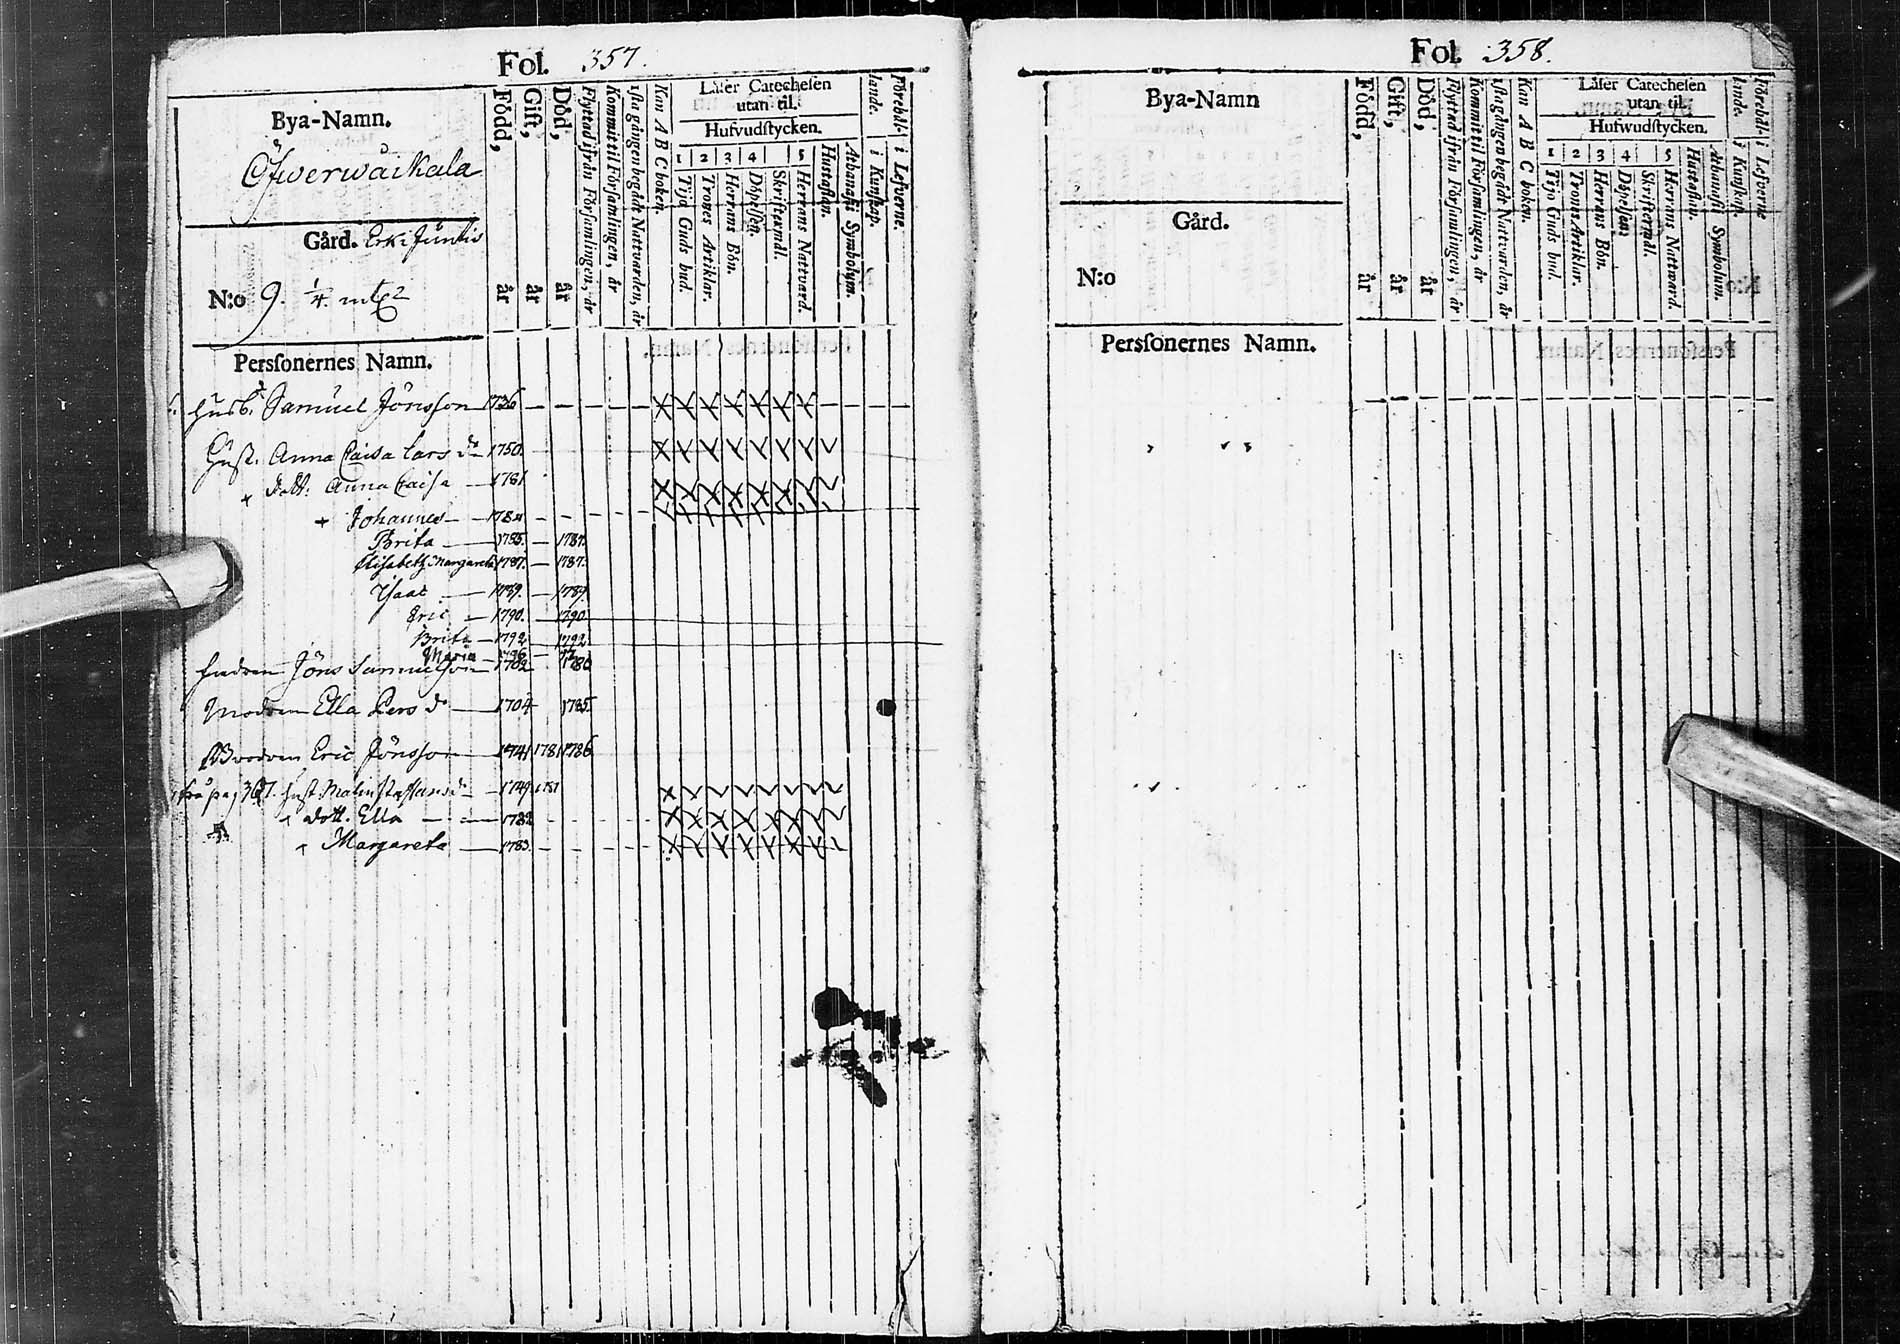 Fol. 357.
Bya-Namn.
Öfwerwåikala
Gård. Erki Juntis
N:o 9. 1/4 mtl
Född, år
Gift, år
Död, år
Flyttad ifrån Församlingen, år
Kommit til Församlingen, år
1sta gången begådt Nattvarden, år
Kan A B C boken.
Låser Catechesen
utan til.
Hufvudstycken.
1 Tijo Guds bud.
2 Trones Artiklar.
3 Herrans Bön.
4 Döpelsen.
Skriftermål.
5 Herrans Nattvard.
Hustaflan.
Athanasii Symbolum.
Förehål-
lande.
i Kunskap.
i Lefverne.
Personernes Namn.
husb. Samuel Jönsson 1736
Hust. Anna Caisa Lars dr 1750
+ dott. Anna Caisa 1781
+ Johannes 1784
Brita 1785. 1787.
Elisabeth Margareta 1787. 1787.
Isaac 1789. 1789.
Eric 1790. 1790
Brita 1792 1792
Maria 1796
fadren Jöns Samuelson 1702 1786
Modren Ella Pers dr 1704 1785.
Brodren Eric Jönsson 1741 1781 1786
frå pag 367. hust Malin Staffans dr 1749 1781
dott. Ella 1782
Margareta 1783.
Fol. 358.
Bya-Namn
Gård.
N:o
Född, år
Gift, år
Död, år
Flyttad ifrån Församlingen, år
Kommit til Församlingen, år
1sta gången begådt Nattvarden, år
Kan A B C boken.
Låser Catechesen
utan til.
Hufwudstycken.
1 Tijo Guds bud.
2 Trons Artiklar.
3 Herrans Bön.
4 Döpelsen
Skriftermål.
5 Herrans Nattward.
Hustaflan.
Athanasii Symbolum.
Förehål-
lande.
i Kunskap.
i Lefverne
Personernes Namn.